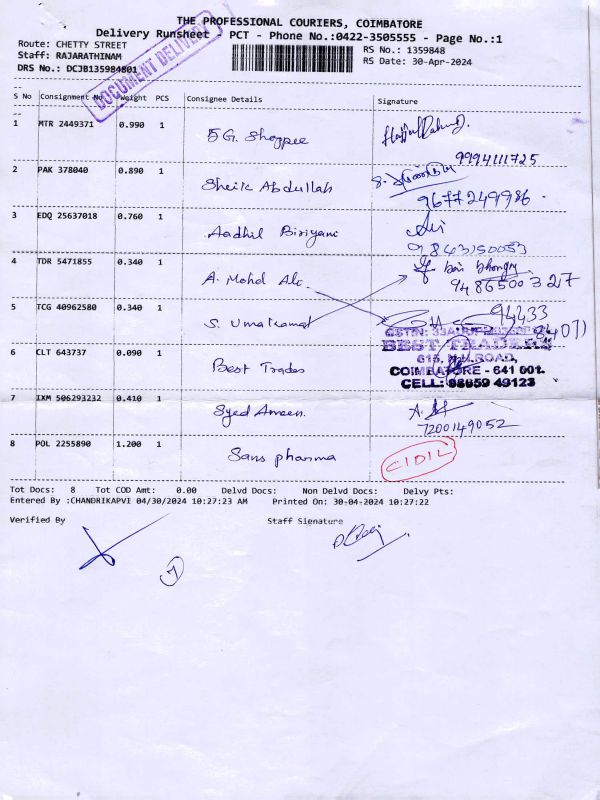 THE PROFESSIONAL COURIERS, COIMBATORE
Delivery Runsheet - PCT - Phone No.:0422-3505555 - Page No.:1
Route: CHETTY STREET
RS No.: 1359848
Staff: RAJARATHINAM
RS Date: 30-Apr-2024
DRS No.: DCJB135984801
DOCUMENT DELIVERY
S No Consignment No Weight PCS Consignee Details Signature
1 MTR 2449371 0.990 1 5G. Shoppee
9994111725
2 PAK 378040 0.890 1 Sheik Abdullah
9677249986
3 EDQ 25637018 0.760 1 Aadhil Biriyani
9843150053
4 TDR 5471855 0.340 1 A. Mohd Ali
9486500327
5 TCG 40962580 0.340 1 S. Umalkamat
94433
94071
GSTIN: 33A
BEST TRADERS
615, N.H.ROAD,
COIMBATORE - 641 001.
CELL: 98659 49123
6 CLT 643737 0.090 1 Best Trades
7 IXM 506293232 0.410 1 Syed Ameen.
7200149052
8 POL 2255890 1.200 1 Sans pharma
CIDIL
Tot Docs: 8 Tot COD Amt: 0.00 Delvd Docs: Non Delvd Docs: Delvy Pts:
Entered By :CHANDRIKAPVI 04/30/2024 10:27:23 AM Printed On: 30-04-2024 10:27:22
Verified By Staff Signature
7